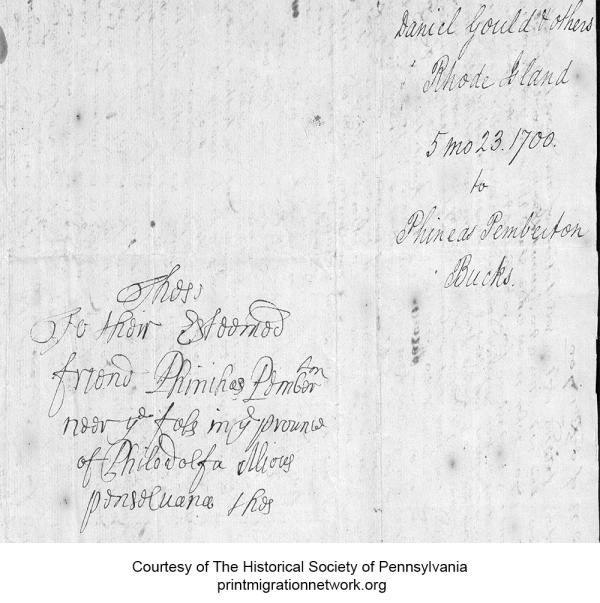 Daniel Gould & others
Rhode Island
5 mo 23. 1700.
to
Phineas Pemberton
Bucks.
Thes
To their Esteemed
friend Phinihas Pembertn
neer ye fals in ye provnce
of Philodolfa Alious
penseluana thes
Courtesy of The Historical Society of Pennsylvania
printmigrationnetwork.org